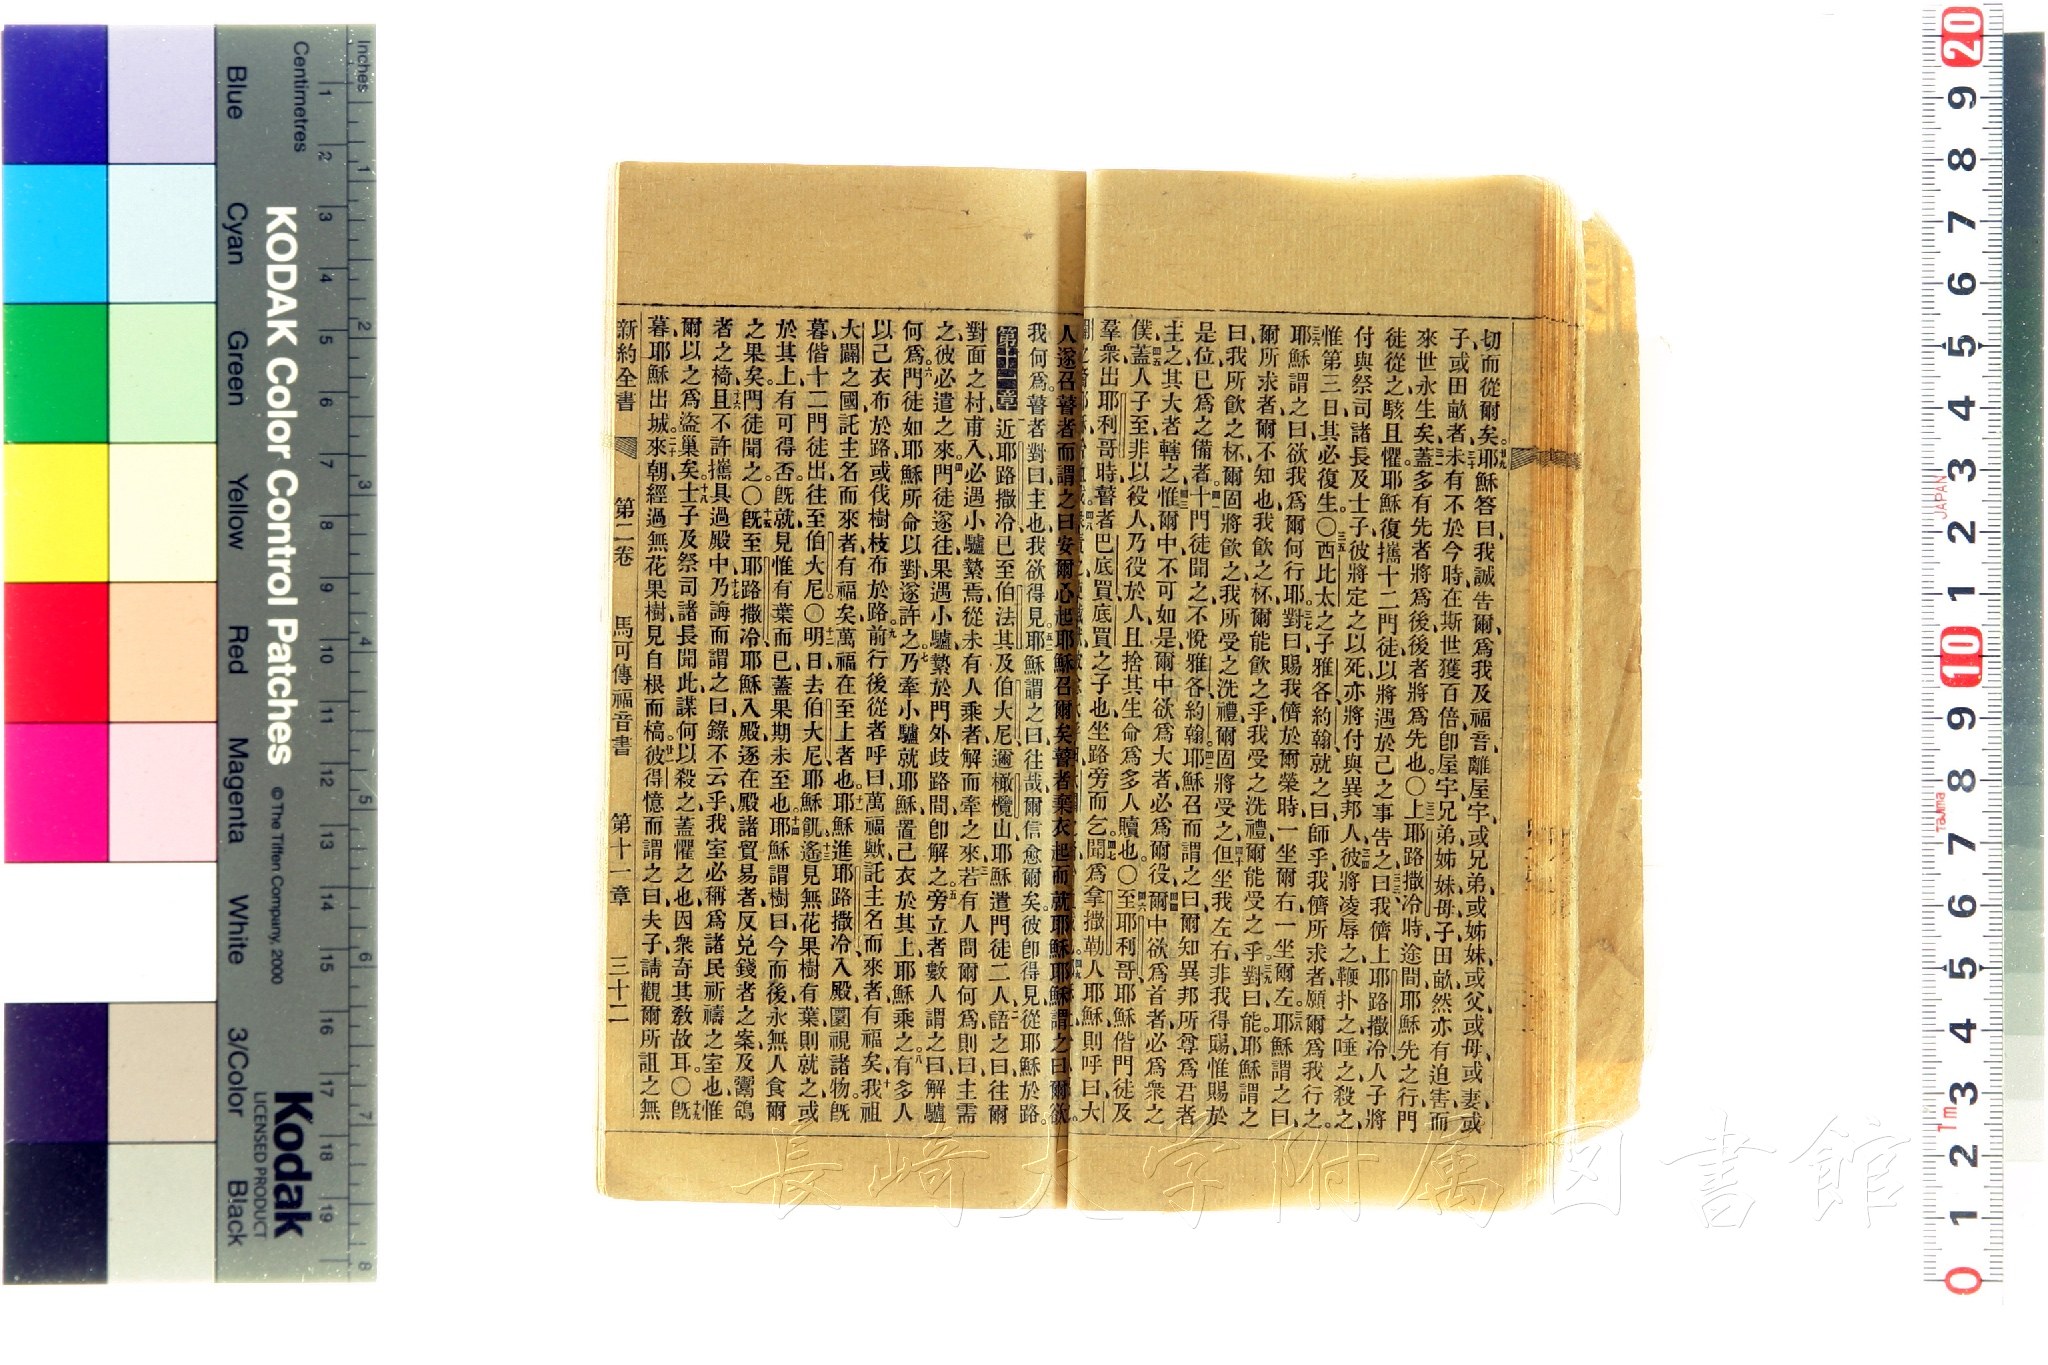 切而從爾矣耶穌答曰我誠告爾爲我及福音離屋宇或兄弟或姊妹或父或母或妻或
子或田畝者未有不於今時在斯世獲百倍卽屋宇兄弟姊妹母子田畝然亦有迫害而
來世永生矣蓋多有先者將爲後後者將爲先也〇上耶路撒冷時途間耶穌先之行門
徒從之駭且懼耶穌復攜十二門徒以將遇於己之事告之曰我儕上耶路撒冷人子將
付與祭司諸長及士子彼將定之以死亦將付與異邦人彼將凌辱之鞭扑之唾之殺之
惟第三日其必復生〇西比太之子雅各約翰就之曰師乎我儕所求者願爾爲我行之
耶穌謂之曰欲我爲爾何行耶對曰賜我儕於爾榮時一坐爾右一坐爾左耶穌謂之曰
爾所求者爾不知也我飲之杯爾能飲之乎我受之洗禮爾能受之乎對曰能耶穌謂之
曰我所飲之杯爾固將飲之我所受之洗禮爾固將受之但坐我左右非我得賜惟賜於
是位已爲之備者十門徒聞之不悅雅各約翰耶穌召而謂之曰爾知異邦所尊爲君者
主之其大者轄之惟爾中不可如是爾中欲爲大者必爲爾役爾中欲爲首者必爲衆之
僕蓋人子至非以役人乃役於人且捨其生命爲多人贖也〇至耶利哥耶穌偕門徒及
羣衆出耶利哥時瞽者巴底買底買之子也坐路旁而乞聞爲拿撒勒人耶穌則呼曰大
人遂召瞽者而謂之曰安爾心起耶穌召爾矣瞽者棄衣起而就耶穌耶穌謂之曰爾欲
我何爲瞽者對曰主也我欲得見耶穌謂之曰往哉爾信愈爾矣彼卽得見從耶穌於路
第十一章 近耶路撒冷已至伯法其及伯大尼邇橄欖山耶穌遣門徒二人語之曰往爾
對面之村甫入必遇小驢縶焉從未有人乘者解而牽之來若有人問爾何爲則曰主需
之彼必遣之來門徒遂往果遇小驢縶於門外歧路間卽解之旁立者數人謂之曰解驢
何爲門徒如耶穌所命以對遂許之乃牽小驢就耶穌置己衣於其上耶穌乘之有多人
以己衣布於路或伐樹枝布於路前行後從者呼曰萬福歟託主名而來者有福矣我祖
大闢之國託主名而來者有福矣萬福在至上者也耶穌進耶路撒冷入殿圜視諸物旣
暮偕十二門徒出往至伯大尼〇明日去伯大尼耶穌飢遙見無花果樹有葉則就之或
於其上有可得否旣就見惟有葉而已蓋果期未至也耶穌謂樹曰今而後永無人食爾
之果矣門徒聞之〇旣至耶路撒冷耶穌入殿逐在殿諸貿易者反兌錢者之案及鬻鴿
者之椅且不許攜具過殿中乃誨而謂之曰錄不云乎我室必稱爲諸民祈禱之室也惟
爾以之爲盜巢矣士子及祭司諸長聞此謀何以殺之蓋懼之也因衆奇其教故耳〇旣
暮耶穌出城來朝經過無花果樹見自根而槁彼得憶而謂之曰夫子請觀爾所詛之無
新約全書 第二卷 馬可傳福音書 第十一章 三十二
Inches
Centimetres
Blue Cyan Green Yellow Red Magenta White 3/Color Black
KODAK Color Control Patches © The Tiffen Company, 2000
Kodak
LICENSED PRODUCT
JAPAN
Tajima
長崎大学附属図書館